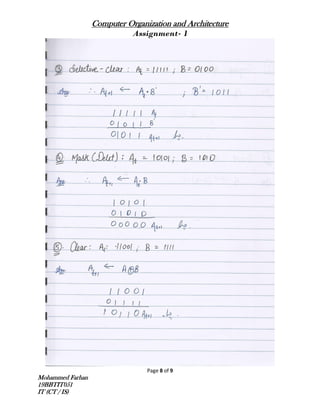 Computer Organization and Architecture
Assignment- 1
③ Selective - clear : At = 11111 ; B = 0100
Ans ∴ At+1 ← At·B' ; B' = 1011
1 1 1 1 1 At
0 1 0 1 1 B'
0 1 0 1 1 At+1
④ Mask (Delet) : At = 10101 ; B = 1010
Ans ∴ At+1 ← At·B
1 0 1 0 1
0 1 0 1 0
0 0 0 0 0 At+1
⑤ Clear : At = 11001 , B = 1111
Ans At+1 ← A⊕B
1 1 0 0 1
0 1 1 1 1
1 0 1 1 0 At+1
Page 8 of 9
Mohammed Farhan
19BBTIT051
IT (CT / IS)